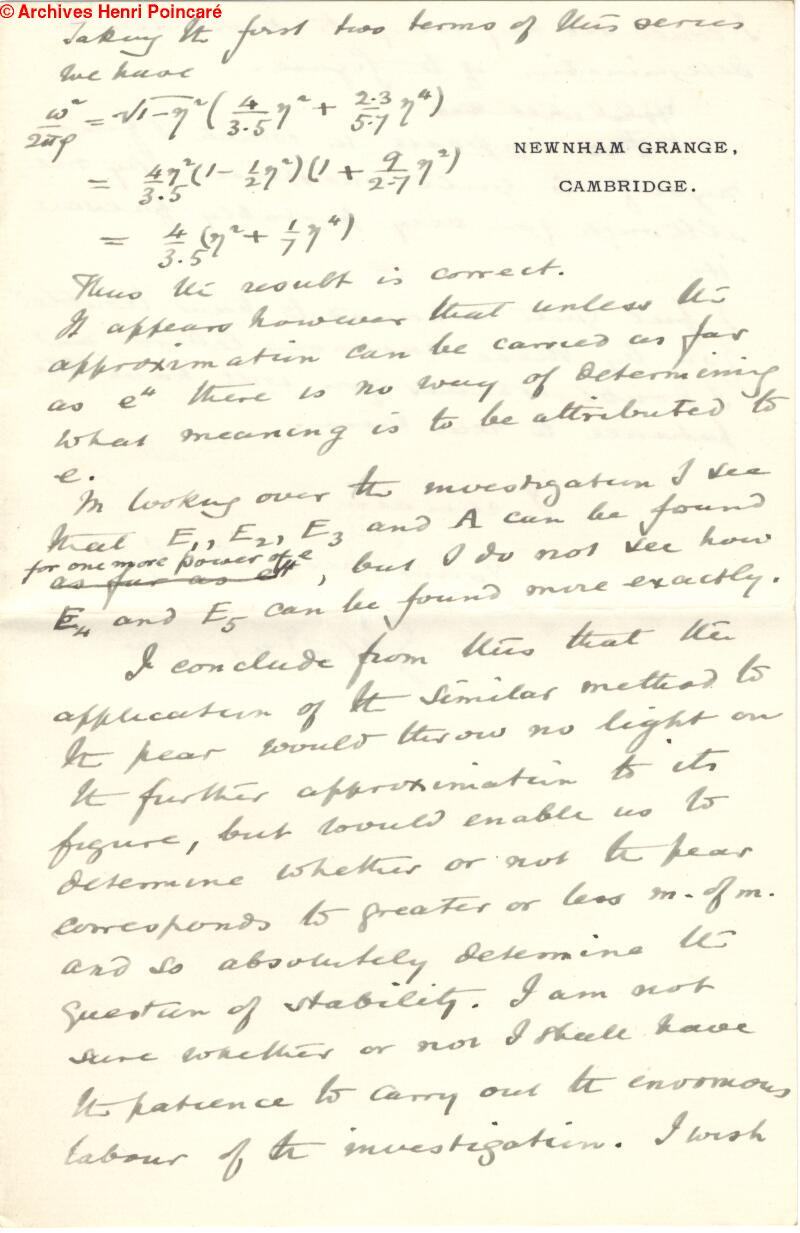 © Archives Henri Poincaré
Taking the first two terms of this series
we have
ω²/2πρ = √1−η² (4/3.5 η² + 2.3/5.7 η⁴)
NEWNHAM GRANGE,
CAMBRIDGE.
= 4η²/3.5 (1 − 1/2 η²)(1 + 9/2.7 η²)
= 4/3.5 (η² + 1/7 η⁴)
Thus the result is correct.
It appears however that unless the
approximation can be carried as far
as e⁴ there is no way of determining
what meaning is to be attributed to
e.
In looking over the investigation I see
that E₁, E₂, E₃ and A can be found
for one more power of e
as far as e⁴, but I do not see how
E₄ and E₅ can be found more exactly.
I conclude from this that the
application of the similar method to
the pear would throw no light on
the further approximation to its
figure, but would enable us to
determine whether or not the pear
corresponds to greater or less m. of m.
and so absolutely determine the
question of stability. I am not
sure whether or not I shall have
the patience to carry out the enormous
labour of the investigation. I wish